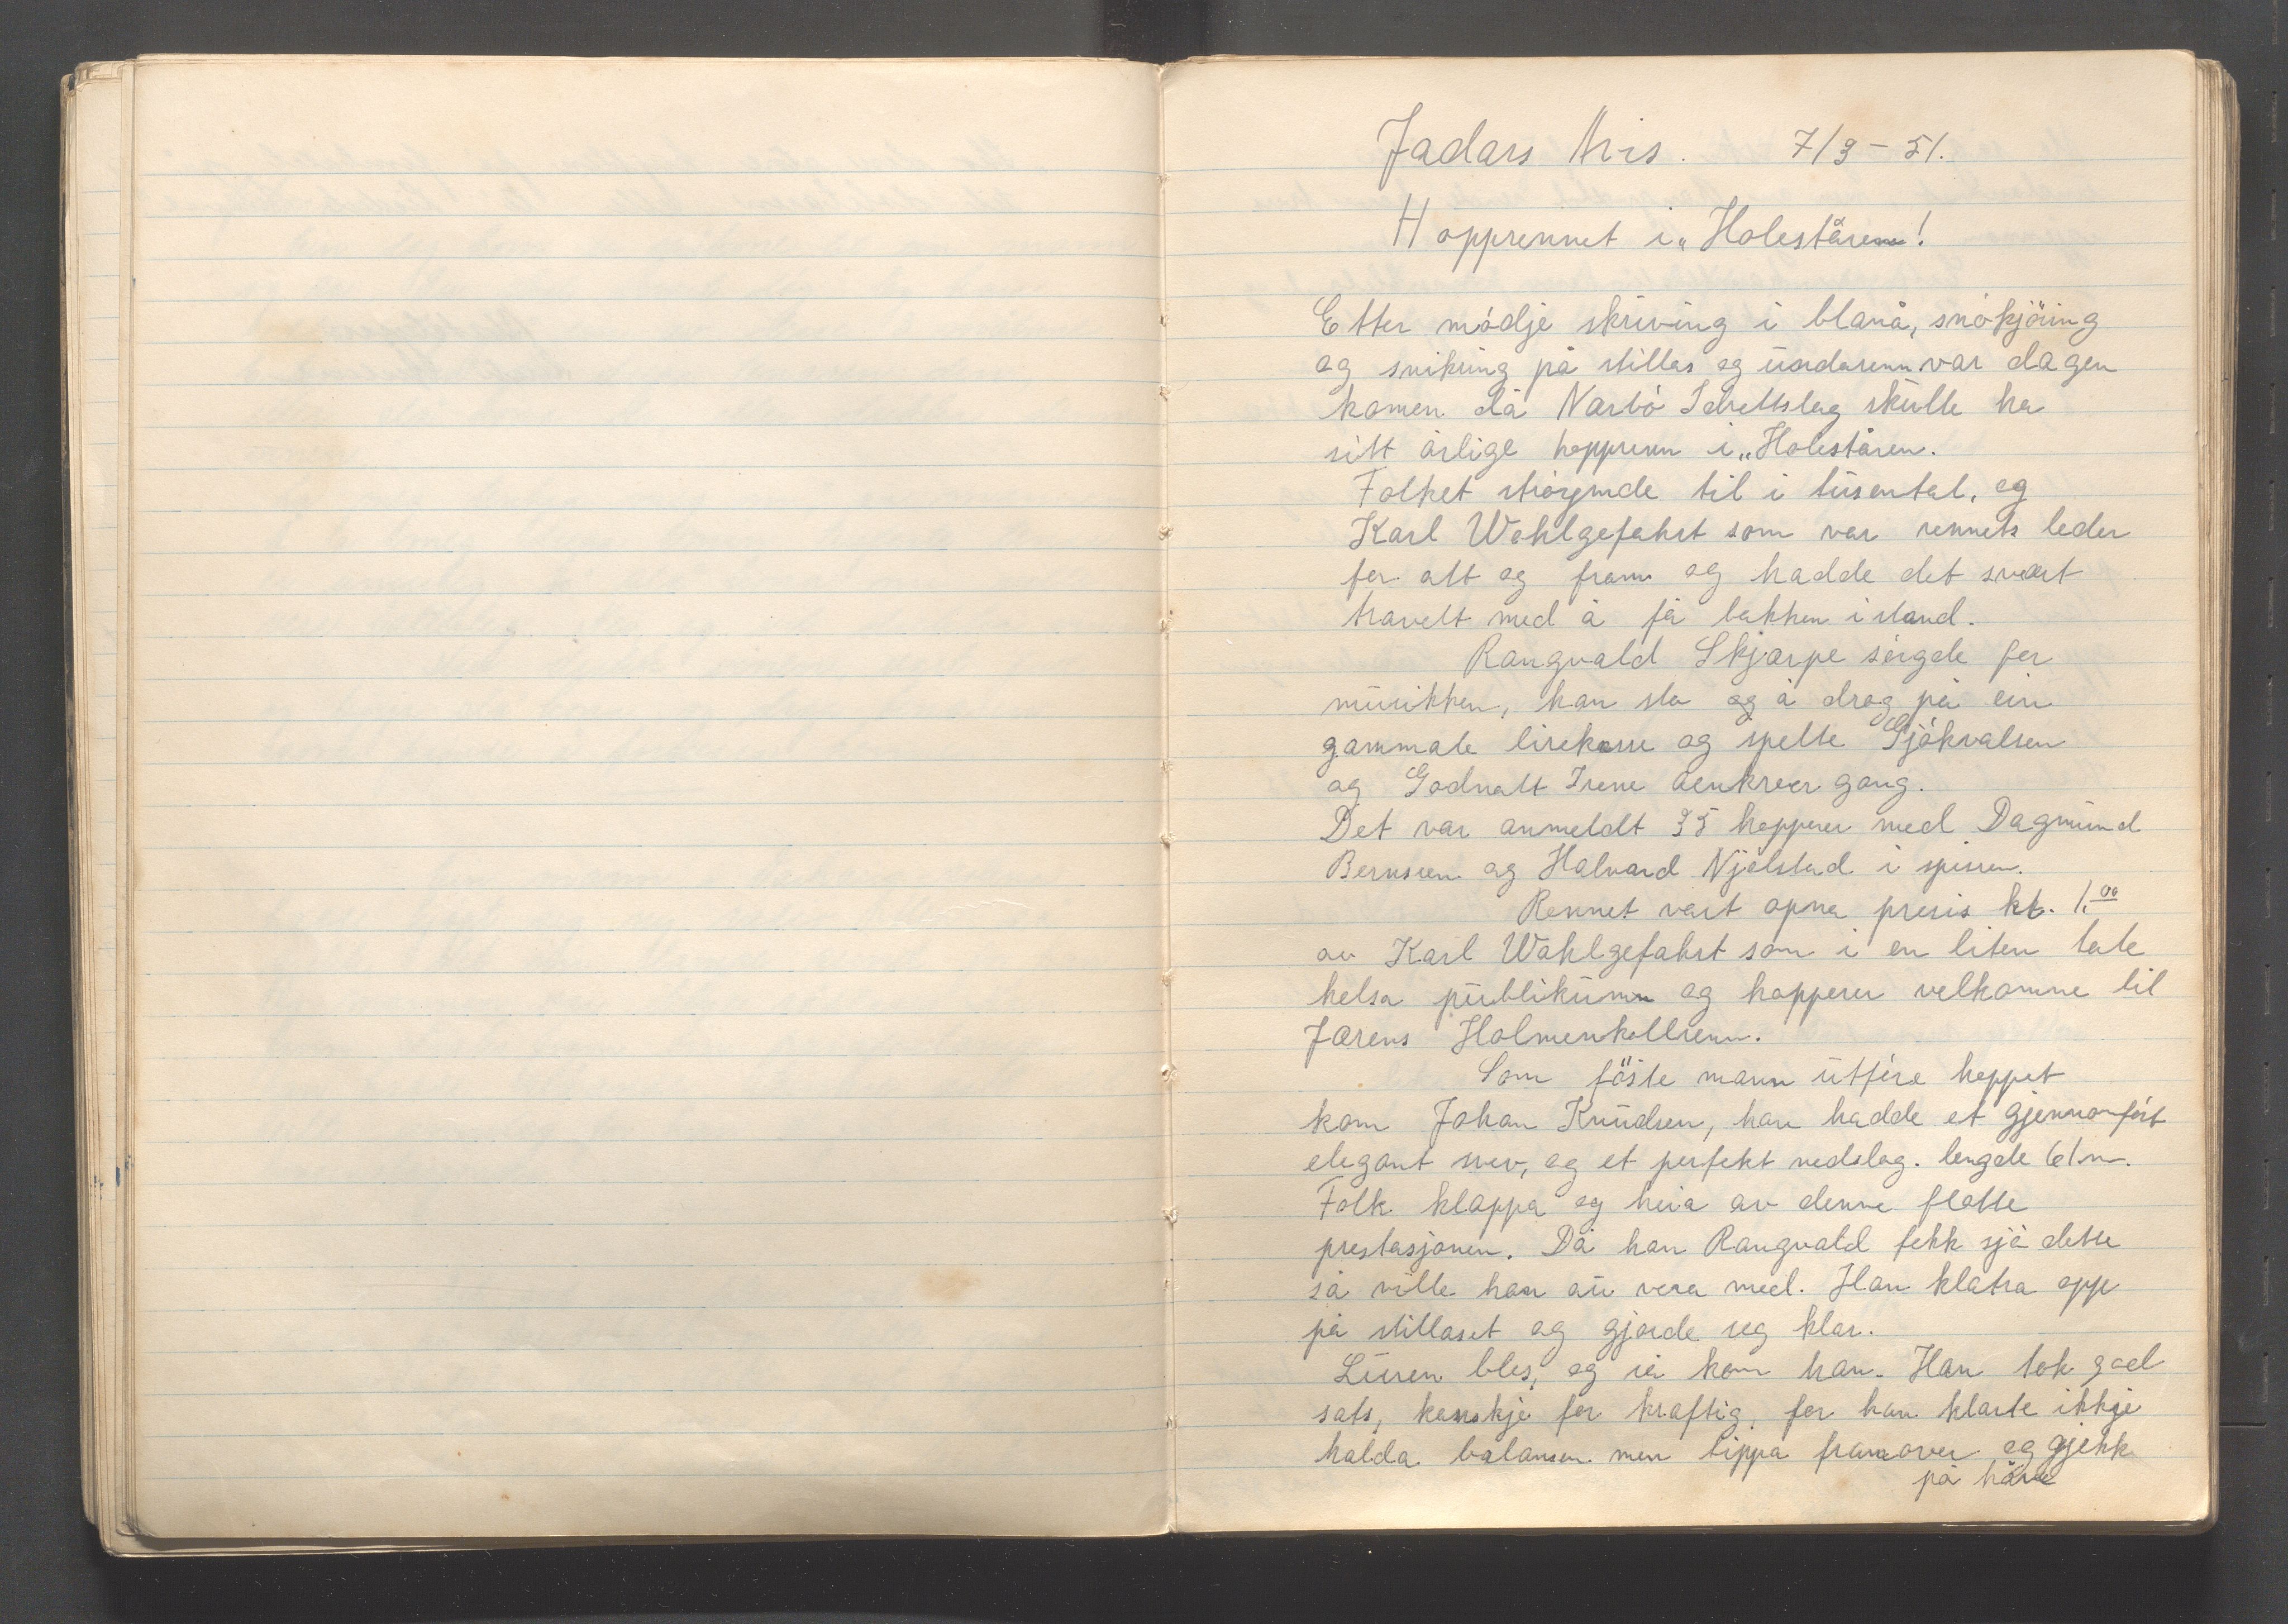 Jadars Avis. 7/3 - 51.
Hopprennet i „Holeståren!
Etter módje skriving i blanå, snókjöring
og snikring på stillas og undarenn var dagen
komen då Narbó Idrettslag skulle ha
sitt årlige hopprenn i „Holeståren.
Folket strøymde til i tusental, og
Karl Wohlgefahrt som var rennets leder
for att og fram og hadde det svært
travelt med å få bakken i stand.
Rangvald Skjærpe sórgde for
musikken, han sto og å drog på ein
gammale lirekasse og spelte Sjókvalsen
og Godnatt Irene aenkreer gang.
Det var anmeldt 35 hopperer med Dagmund
Bernsen og Halvard Njølstad i spissen.
Rennet vart opna presis kl. 1.00
av Karl Wohlgefahrt som i en liten tale
helsa publikumm og hopperer velkomne til
Jærens Holmenkollrenn.
Som föste mann utfóre hoppet
kom Johan Knudsen, han hadde et gjennomfórt
elegant svev, og et perfekt nedslag. lengde 61 m.
Folk klappa og heia av denne flotte
prestasjonen. Då han Rangvald fekk sjå dette
så ville han au vera med. Han klatra opp
på stillaset og gjorde seg klar.
Luren bles, og så kom han. Han tok god
sats, kanskje for kraftig, for han klarte ikkje
halda balansen men tippa framover og gjekk
på håve